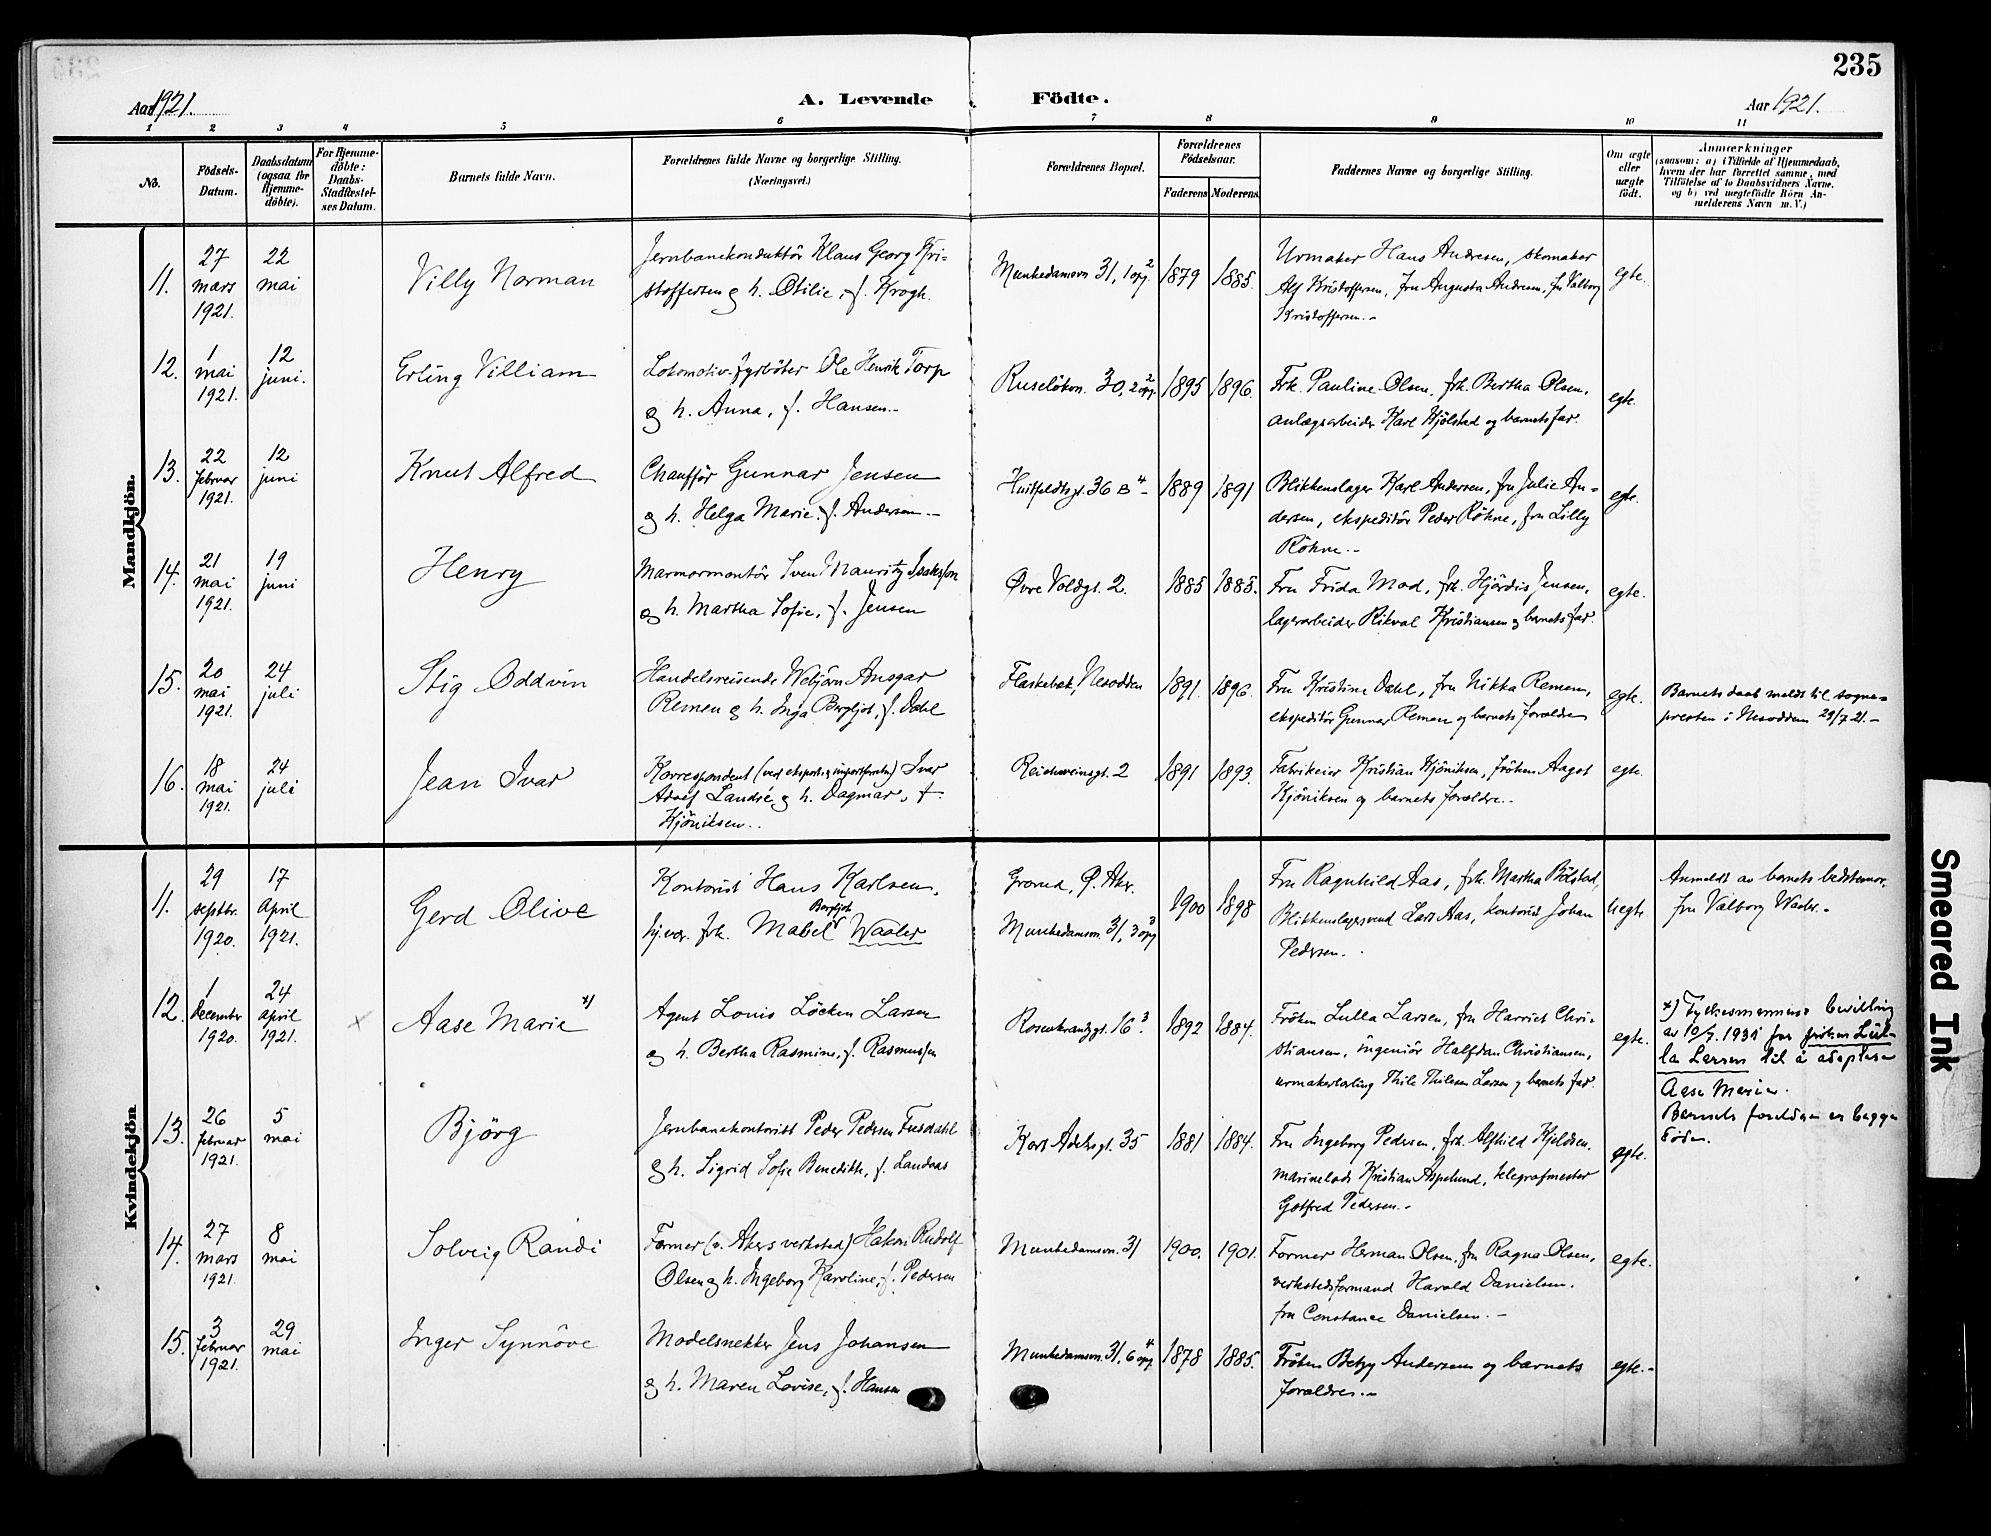 235
Aar 1921.
A. Levende Födte.
Aar 1921.
1 2 3 4 5 6 7 8 9 10 11
No.
Födsels-
Datum.
Daabsdatum
(ogsaa for
Hjemme-
döbte).
For Hjemme-
döbte:
Daabs-
Stadfæstel-
ses Datum.
Barnets fulde Navn.
Forældrenes fulde Navne og borgerlige Stilling.
(Næringsvei.)
Forældrenes Bopæl.
Forældrenes
Födselsaar.
Faderens Moderens
Faddernes Navne og borgerlige Stilling.
Om ægte
eller
uægte
födt.
Anmærkninger
(saasom: a) i Tilfælde af Hjemmedaab,
hvem der har forrettet samme, med
Tilföielse af to Daabsvidners Navne,
og b) ved uægtefödte Börn An-
melderens Navn m. V.)
Mandkjön.
11.
27
mars
1921.
22
mai
Villy Norman
Jernbanekonduktör Klaus Georg Kri-
stoffersen og h. Otilie, f. Krogh.
Munkedamsvn 31, 1 opg. 2
1879
1885.
Urmaker Hans Andresen, skomaker
Alf Kristoffersen, fru Augusta Andresen, fru Valborg
Kristoffersen.-
egte.
12.
1
mai
1921.
12
juni.
Erling Villiam
Lokomotiv-fyrböter Ole Henrik Torp
og h. Anna, f. Hansen.-
Ruselökvn. 30, 2 opg. 2
1895
1896.
Frk. Pauline Olsen, frk. Bertha Olsen,
anlægsarbeider Karl Hjölstad og barnets far.
egte.
13.
22
februar
1921.
12
juni
Knut Alfred
Chaufför Gunnar Jensen
og h. Helga Marie, f. Andersen.-
Huitfeldtsgt. 36 B 4
1889
1891
Blikkenslager Karl Andersen, fru Julie An-
dersen, ekspeditör Peder Röhne, fru Lilly
Röhne.-
egte.
14.
21
mai
1921.
19
juni
Henry
Marmormontör Sven Mauritz Isaksson
og h. Martha Sofie, f. Jensen
Øvre Voldgt. 2.
1885
1885.
Fru Frida Mod, frk. Hjördis Jensen,
lagerarbeider Rikval Kristiansen og barnets far.
egte.
15.
20
mai
1921.
24
juli
Stig Oddvin
Handelsreisende Webjörn Ansgar
Remen og h. Inga Bergljot, f. Dahl
Flaskebæk, Nesodden
1891.
1896.
Fru Kristine Dahl, fru Nikka Remen,
ekspeditör Gunnar Remen og barnets forældre
egte.
Barnets daab meldt til sogne-
presten i Nesodden 29/7 21.-
16.
18
mai
1921.
24
juli
Jean Ivar
Korrespondent (ved eksport og importforretn) Ivar
Adolf Landré og h. Dagmar, f.
Kjöniksen..
Reichweinsgt. 2
1891
1893.
Fabrikeier Kristian Kjöniksen, fröken Aagot
Kjöniksen og barnets forældre.-
egte.
Kvindekjön.
11.
29
septbr.
1920.
17
April
1921.
Gerd Olive
Kontorist Hans Karlsen,
hj.vær. frk. Mabel Bergljot Waaler
Grorud, Ø. Aker.
Munkedamsvn. 31, 3 opg 3
1900
1898
Fru Ragnhild Aas, frk. Martha Bölstad,
Blikkenslagersvend Lars Aas, kontorist Johan
Pedersen.
uegte.
Anmeldt av barnets bedstemor,
fru Valborg Waaler.-
12.
1
december
1920.
24
april
1921.
x
Aase Marie x)
Agent Louis Löcken Larsen
og h. Bertha Rasmine, f. Rasmussen
Rosenkrantzgt. 16 3.
1892
1884.
Fröken Lulla Larsen, fru Harriet Chri-
stiansen, ingeniör Halfdan Christiansen,
urmakerlærling Thile Thilesen Larsen og barnets far.
egte.
x) Fylkesmannens bevilling
av 10/7. 1931 for fröken Lul-
la Larsen til å adoptere
Aase Marie.
Barnets foreldre er begge
döde.
13.
26
februar
1921.
5
mai
Björg
Jernbanekontorist Peder Pedersen Fusdahl
og h. Sigrid Sofie Benedikte, f. Landaas
Kort Adelersgt. 35
1881
1884.
Fru Ingeborg Pedersen, frk. Alfhild Kjeldsen,
marinelods Kristian Aspelund, telegrafmester
Gotfred Pedersen.-
egte.
14.
27
mars
1921.
8
mai
Solveig Randi
Former (v. Akers verksted) Hakon Rudolf
Olsen og h. Ingeborg Karoline, f. Pedersen
Munkedamsvn. 31
1900.
1901.
Former Herman Olsen, fru Ragna Olsen,
verkstedsformand Harald Danielsen,
fru Constance Danielsen.-
egte.
15.
3
februar
1921.
29
mai
Inger Synnöve
Modelsnekker Jens Johansen
og h. Maren Lovise, f. Hansen
Munkedamsvn. 31, 6 opg. 4
1878
1885.
Fröken Betzy Andersen og barnets
forældre.-
egte.-
Smeared Ink